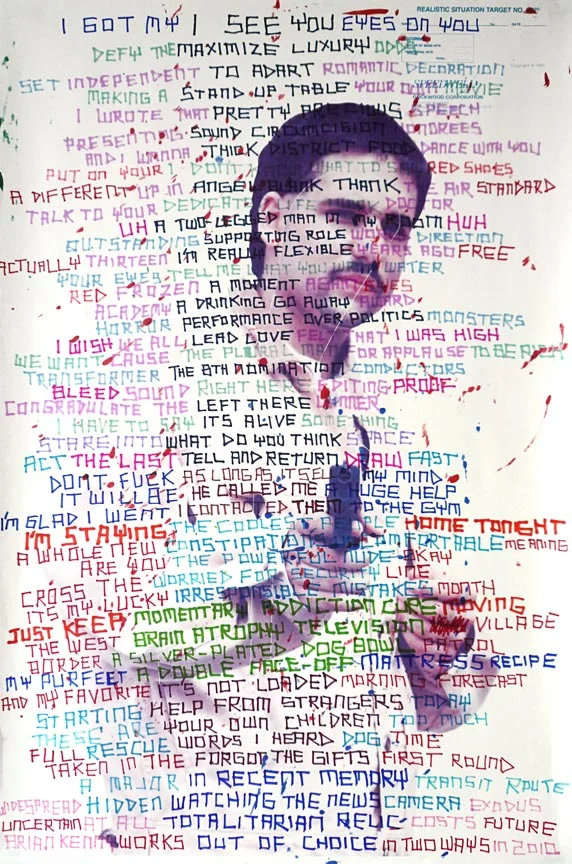 REALISTIC SITUATION TARGET NO.
I GOT MY I SEE YOU EYES ON YOU
DEFY THE MAXIMIZE LUXURY ODDS
SET INDEPENDENT TO ADART ROMANTIC DECORATION
MAKING A STAND UP TABLE YOUR OWN MOVIE
I WROTE THAT PRETTY PRECIOUS SPEECH
PRESENTING SOUND CIRCUMCISION
AND I WANNA THICK DISTRICT FOOD DANCE WITH YOU
PUT ON YOUR I DON'T WHAT TO SAY RED SHOES
A DIFFERENT UP IN ANGEL BLANK THANK AIR STANDARD
TALK TO YOUR DEDICATE LIFE THANK DOCTOR
UH A TWO-LEGGED MAN IN MY ROOM HUH
OUTSTANDING SUPPORTING ROLE DIRECTION
ACTUALLY THIRTEEN I'M REALLY FLEXIBLE YEARS AGO FREE
YOUR EYES TELL ME WHAT YOU WANT WATER
RED FROZEN A MOMENT AGAIN EYES
ACADEMY A DRINKING GO AWAY AWARD
HORROR PERFORMANCE OVER POLITICS MONSTERS
I WISH WE ALL LEAD LOVE FELL THAT I WAS HIGH
WE WANT CAUSE THE PLURAL MAN FOR APPLAUSE TO BE
TRANSFORMER THE 8TH DOMINATION CONDUCTORS
BLEED SOUND RIGHT HERE EDITING PROOF
CONGRADULATE THE LEFT THERE
I HAVE TO SAY IT'S ALIVE SOMETHING
STARE INTO WHAT DO YOU THINK SPACE
ACT THE LAST TELL AND RETURN DRAW FAST
DON'T FUCK AS LONG AS IT SELLS MY MIND
IT WILL BE HE CALLED ME A HUGE HELP
I'M GLAD I WENT I CONTACTED THEM TO THE GYM
I'M STAYING THE COOLEST PEOPLE HOME TONIGHT
A WHOLE NEW CONSTIPATION UNCOMFORTABLE MEANING
ARE YOU THE POWER OKAY
CROSS THE WORRIED FOR SECURITY LINE
IT'S MY LUCKY IRRESPONSIBLE MISTAKES MONTH
JUST KEEP MOMENTARY ADDICTION CURE MOVING
THE WEST BRAIN ATROPHY TELEVISION VILLAGE
BORDER A SILVER-PLATED DOG BOWL PATROL
MY PURFEET A DOUBLE FACE-OFF MATTRESS RECIPE
AND MY FAVORITE IT'S NOT LOADED MORNING FORECAST
STARTING HELP FROM STRANGERS TODAY
THESE ARE YOUR OWN CHILDREN TOO MUCH
FULL RESCUE WORDS I HEARD DOG TIME
TAKEN IN THE FORGOT THE GIFTS FIRST ROUND
A MAJOR IN RECENT MEMORY TRANSIT ROUTE
WIDESPREAD HIDDEN WATCHING THE NEWS CAMERA EXODUS
UNCERTAIN AT ALL TOTALITARIAN RELIC COSTS FUTURE
BRIAN KENNY WORKS OUT OF CHOICE IN TWO WAYS IN 2010